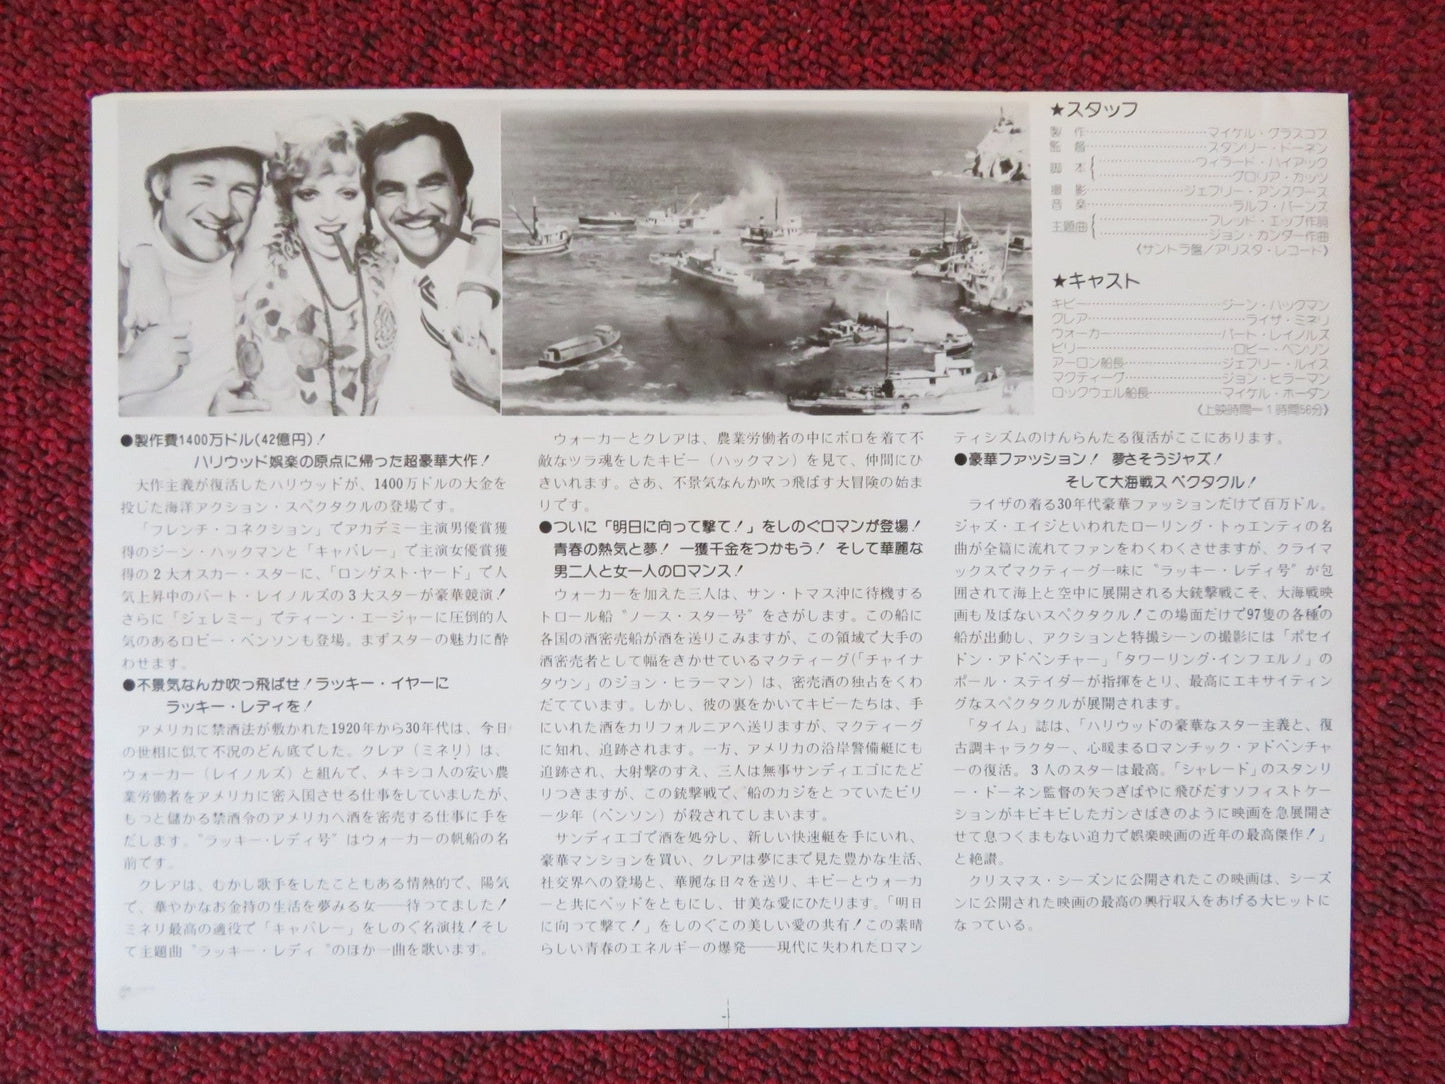 ●製作費1400万ドル(42億円)！
ハリウッド娯楽の原点に帰った超豪華大作！
大作主義が復活したハリウッドが、1400万ドルの大金を
投じた海洋アクション・スペクタクルの登場です。
「フレンチ・コネクション」でアカデミー主演男優賞獲
得のジーン・ハックマンと「キャバレー」で主演女優賞獲
得の2大オスカー・スターに、「ロンゲスト・ヤード」で人
気上昇中のバート・レイノルズの3大スターが豪華競演！
さらに「ジェレミー」でティーン・エージャーに圧倒的人
気のあるロビー・ベンソンも登場。まずスターの魅力に酔
わせます。
●不景気なんか吹っ飛ばせ！ラッキー・イヤーに
ラッキー・レディを！
アメリカに禁酒法が敷かれた1920年から30年代は、今日
の世相に似て不況のどん底でした。クレア（ミネリ）は、
ウォーカー（レイノルズ）と組んで、メキシコ人の安い農
業労働者をアメリカに密入国させる仕事をしていましたが、
もっと儲かる禁酒令のアメリカへ酒を密売する仕事に手を
だします。〝ラッキー・レディ号〟はウォーカーの帆船の名
前です。
クレアは、むかし歌手をしたこともある情熱的で、陽気
で、華やかなお金持の生活を夢みる女――待ってました！
ミネリ最高の適役で「キャバレー」をしのぐ名演技！そし
て主題曲〝ラッキー・レディ〟のほか一曲を歌います。
ウォーカーとクレアは、農業労働者の中にボロを着て不
敵なツラ魂をしたキビー（ハックマン）を見て、仲間にひ
きいれます。さあ、不景気なんか吹っ飛ばす大冒険の始ま
りです。
●ついに「明日に向って撃て！」をしのぐロマンが登場！
青春の熱気と夢！ 一獲千金をつかもう！ そして華麗な
男二人と女一人のロマンス！
ウォーカーを加えた三人は、サン・トマス沖に待機する
トロール船〝ノース・スター号〟をさがします。この船に
各国の酒密売船が酒を送りこみますが、この領域で大手の
酒密売者として幅をきかせているマクティーグ(「チャイナ
タウン」のジョン・ヒラーマン）は、密売酒の独占をくわ
だてています。しかし、彼の裏をかいてキビーたちは、手
にいれた酒をカリフォルニアへ送りますが、マクティーグ
に知れ、追跡されます。一方、アメリカの沿岸警備艇にも
追跡され、大射撃のすえ、三人は無事サンディエゴにたど
りつきますが、この銃撃戦で、船のカジをとっていたビリ
ー少年（ベンソン）が殺されてしまいます。
サンディエゴで酒を処分し、新しい快速艇を手にいれ、
豪華マンションを買い、クレアは夢にまで見た豊かな生活、
社交界への登場と、華麗な日々を送り、キビーとウォーカ
ーと共にベッドをともにし、甘美な愛にひたります。「明日
に向って撃て！」をしのぐこの美しい愛の共有！この素晴
らしい青春のエネルギーの爆発――現代に失われたロマン
★スタッフ
製作……マイケル・グラスコフ
監督……スタンリー・ドーネン
脚本{……ウィラード・ハイアック
グロリア・カッツ
撮影……ジェフリー・アンスワース
音楽……ラルフ・バーンズ
主題曲{……フレッド・エッブ作詞
ジョン・カンダー作曲
《サントラ盤/アリスタ・レコード》
★キャスト
キビー……ジーン・ハックマン
クレア……ライザ・ミネリ
ウォーカー……バート・レイノルズ
ビリー……ロビー・ベンソン
アーロン船長……ジェフリー・ルイス
マクティーグ……ジョン・ヒラーマン
ロックウェル船長……マイケル・ホーダン
《上映時間―1時間56分》
ティシズムのけんらんたる復活がここにあります。
●豪華ファッション！ 夢さそうジャズ！
そして大海戦スペクタクル！
ライザの着る30年代豪華ファッションだけで百万ドル。
ジャズ・エイジといわれたローリング・トゥエンティの名
曲が全篇に流れてファンをわくわくさせますが、クライマ
ックスでマクティーグ一味に〝ラッキー・レディ号〟が包
囲されて海上と空中に展開される大銃撃戦こそ、大海戦映
画も及ばないスペクタクル！この場面だけで97隻の各種の
船が出動し、アクションと特撮シーンの撮影には「ポセイ
ドン・アドベンチャー」「タワーリング・インフェルノ」の
ポール・ステイダーが指揮をとり、最高にエキサイティン
グなスペクタクルが展開されます。
「タイム」誌は、「ハリウッドの豪華なスター主義と、復
古調キャラクター、心暖まるロマンチック・アドベンチャ
ーの復活。3人のスターは最高。「シャレード」のスタンリ
ー・ドーネン監督の矢つぎばやに飛びだすソフィストケー
ションがキビキビしたガンさばきのように映画を急展開さ
せて息つくまもない迫力で娯楽映画の近年の最高傑作！」
と絶讃。
クリスマス・シーズンに公開されたこの映画は、シーズ
ンに公開された映画の最高の興行収入をあげる大ヒットに
なっている。